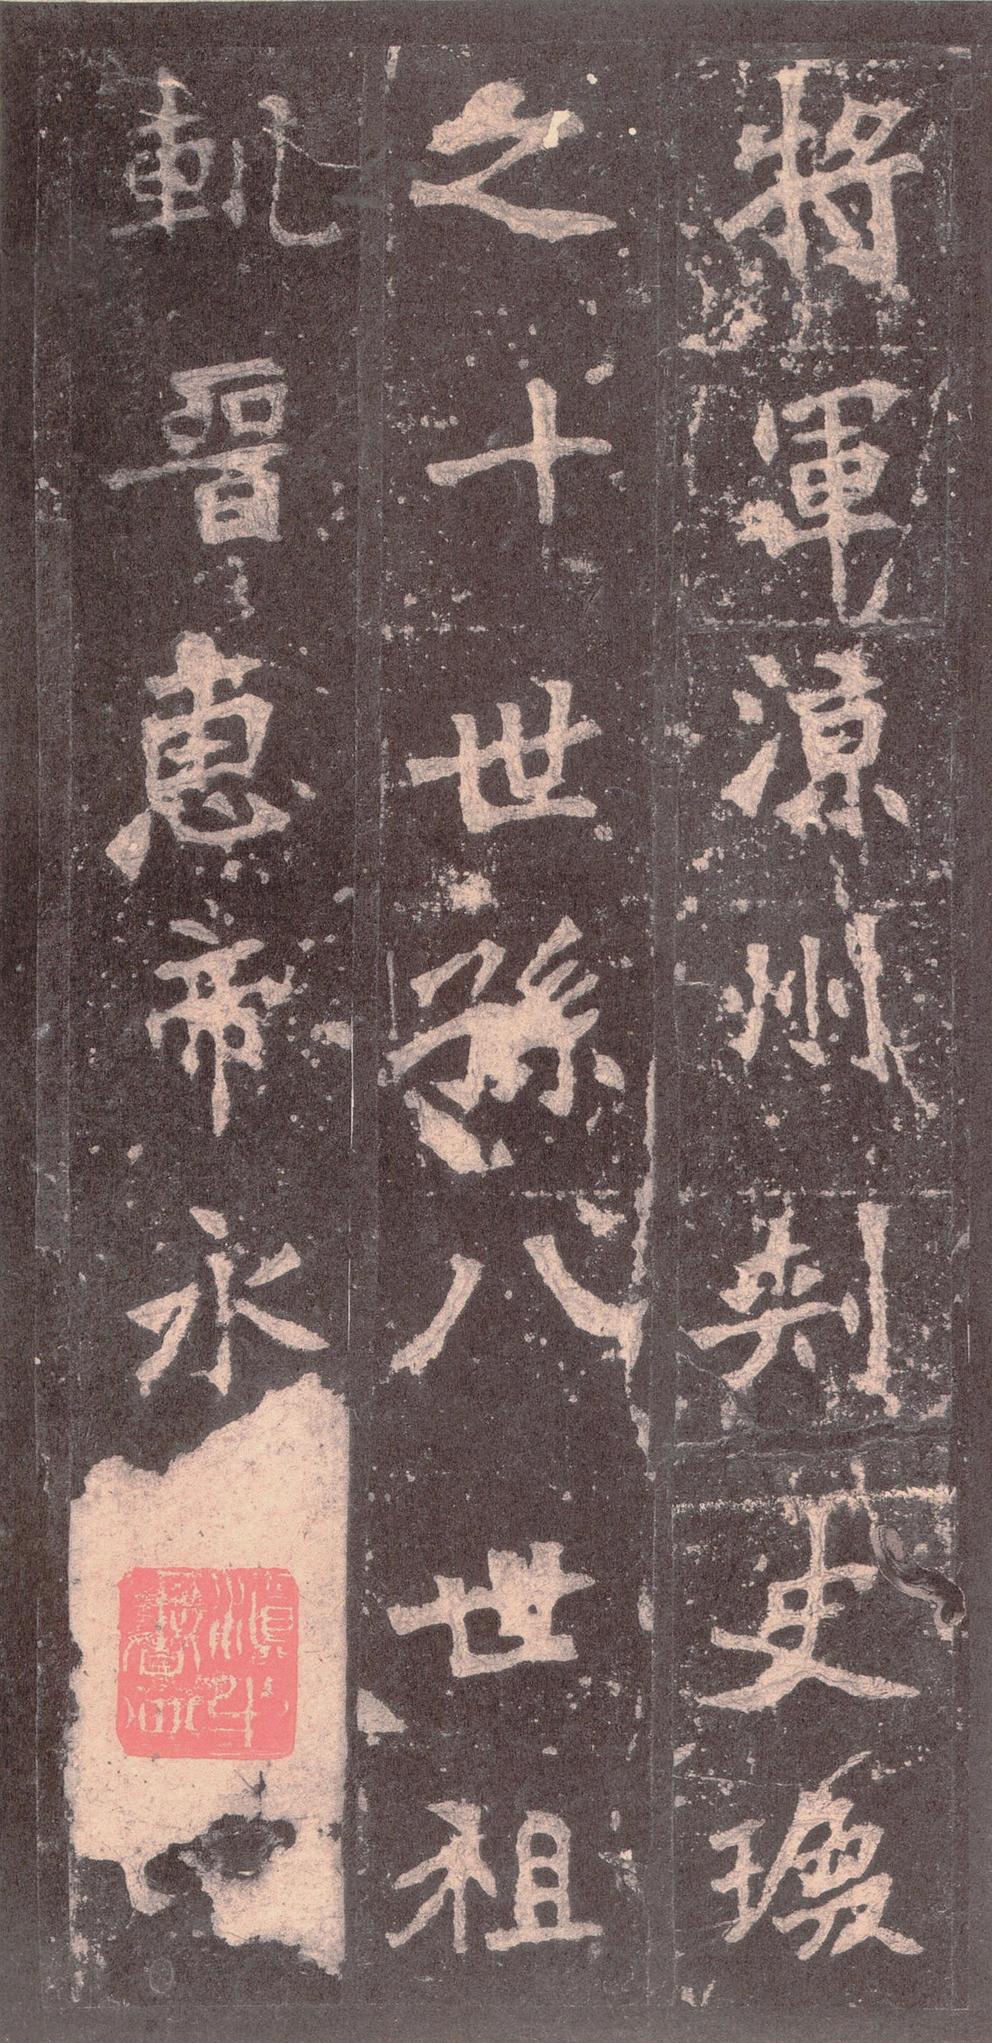 將軍涼州刺史瑍
之十世孫八世祖
軌晉惠帝永